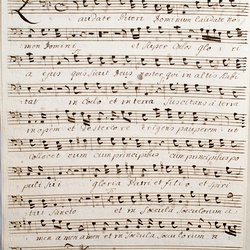 Laudate Pueri Dominum Laudate no
men Domini et Super Coelos glori
a ejus quis sicut Deus noster qui in altis habi
tat in Coelo et in terra Suscitans à terra
inopem et de stercore erigens pauperem ut
Collocet eum cum principibus cum principibus po
puli sui gloria Patri et filio et Spiri
tui Sancto et in Saecula Saeculorum a
men a men amen et in Saecula Saeculorum a